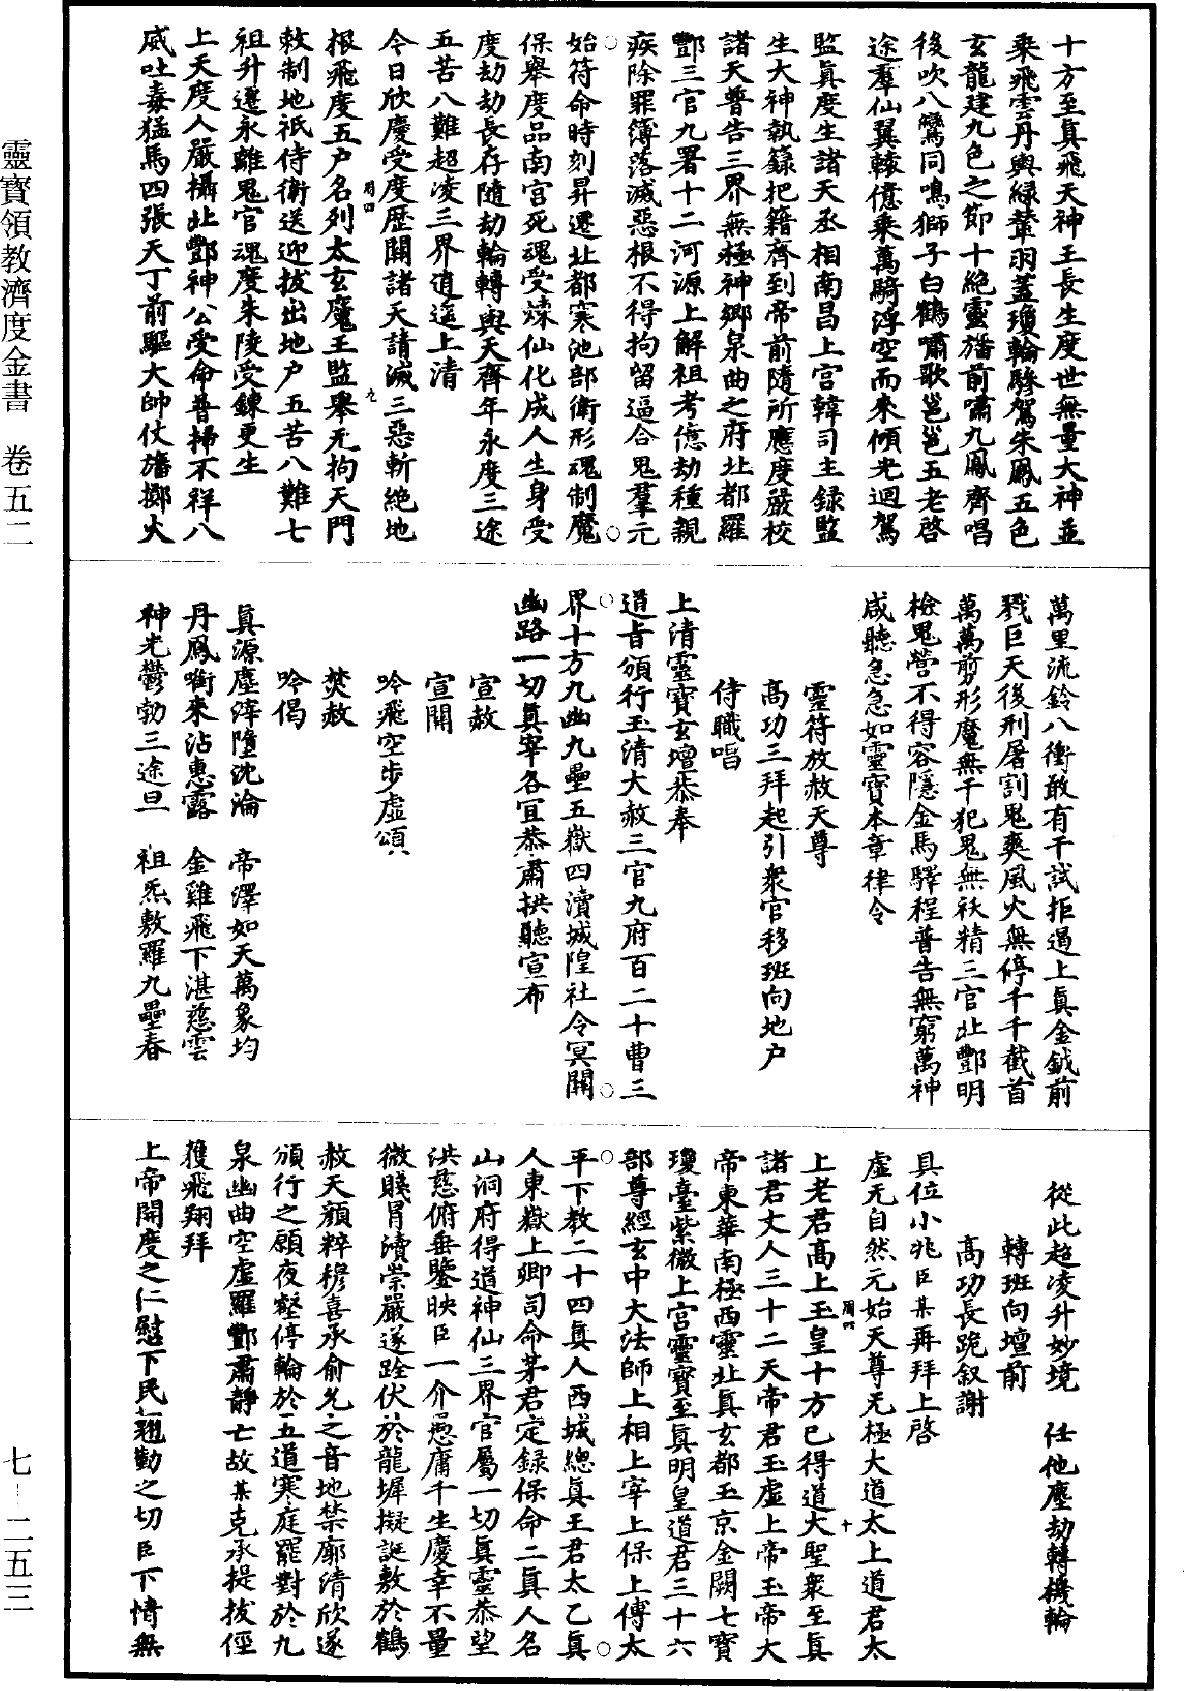 十方至眞飛天神王長生度世無量大神並
乘飛雲丹輿綠輦羽蓋瓊輪驂駕朱鳳五色
玄龍建九色之節十絕靈旛前嘯九鳳齊唱
後吹八鸞同鳴獅子白鶴嘯歌邕邕五老啓
途羣仙翼轅億乘萬騎浮空而來傾光迴駕
監眞度生諸天丞相南昌上宮韓司主錄監
生大神執籙把籍齊到帝前隨所應度嚴校
諸天普告三界無極神鄉泉曲之府北都羅
酆三官九署十二河源上解祖考億劫種親
疾除罪簿落滅惡根不得拘留逼合鬼羣元
始符命時刻昇遷北都寒池部衛形魂制魔
保舉度品南宮死魂受煉仙化成人生身受
度劫劫長存隨劫輪轉與天齊年永度三途
五苦八難超凌三界逍遥上清
今日欣慶受度歷關諸天請滅三惡斬絕地
根飛度五戶名列太玄魔王監舉无拘天門
敕制地祇侍衛送迎拔出地戶五苦八難七
祖升遷永離鬼官魂度朱陵受鍊更生
上天度人嚴攝北酆神公受命普掃不祥八
威吐毒猛馬四張天丁前驅大帥仗旛擲火
萬里流鈴八衝敢有干試拒遏上眞金鉞前
戮巨天後刑屠割鬼爽風火無停千千截首
萬萬剪形魔無干犯鬼無袄精三官北酆明
檢鬼營不得容隱金馬驛程普告無窮萬神
咸聽急急如靈寶本章律令
靈符放赦天尊
高功三拜起引衆官移班向地戶
侍職唱
上清靈寶玄壇恭奉
道旨頒行玉清大赦三官九府百二十曹三
界十方九幽九壘五嶽四瀆城隍社令冥關
幽路一切眞宰各宜恭肅拱聽宣布
宣赦
宣關
吟飛空步虛頌
焚赦
吟偈
眞源塵滓墮沈淪　帝澤如天萬象均
丹鳳啣來沾惠露　金雞飛下湛慈雲
神光鬱勃三途旦　祖炁敷羅九壘春
從此超凌升妙境　任他塵劫轉機輪
轉班向壇前
高功長跪叙謝
具位小兆臣某再拜上啓
虛无自然元始天尊无極大道太上道君太
上老君高上玉皇十方已得道大聖衆至眞
諸君丈人三十二天帝君玉虛上帝玉帝大
帝東華南極西靈北眞玄都玉京金闕七寶
瓊臺紫微上宮靈寶至眞明皇道君三十六
部尊經玄中大法師上相上宰上保上傅太
平下教二十四眞人西城總眞王君太乙眞
人東嶽上卿司命茅君定錄保命二眞人名
山洞府得道神仙三界官屬一切眞靈恭望
洪慈俯垂鑒映臣一介愚庸千生慶幸不量
微賤冒瀆崇嚴遂跧伏於龍墀擬誕敷於鶴
赦天顏粹穆喜承俞允之音地禁廓清欣遂
頒行之願夜壑停輪於五道寒庭罷對於九
泉幽曲空虛羅酆肅靜亡故某克承提拔徑
獲飛翔拜
上帝開度之仁慰下民翹勤之切臣下情無
靈寶領教濟度金書　卷五二
七-二五三